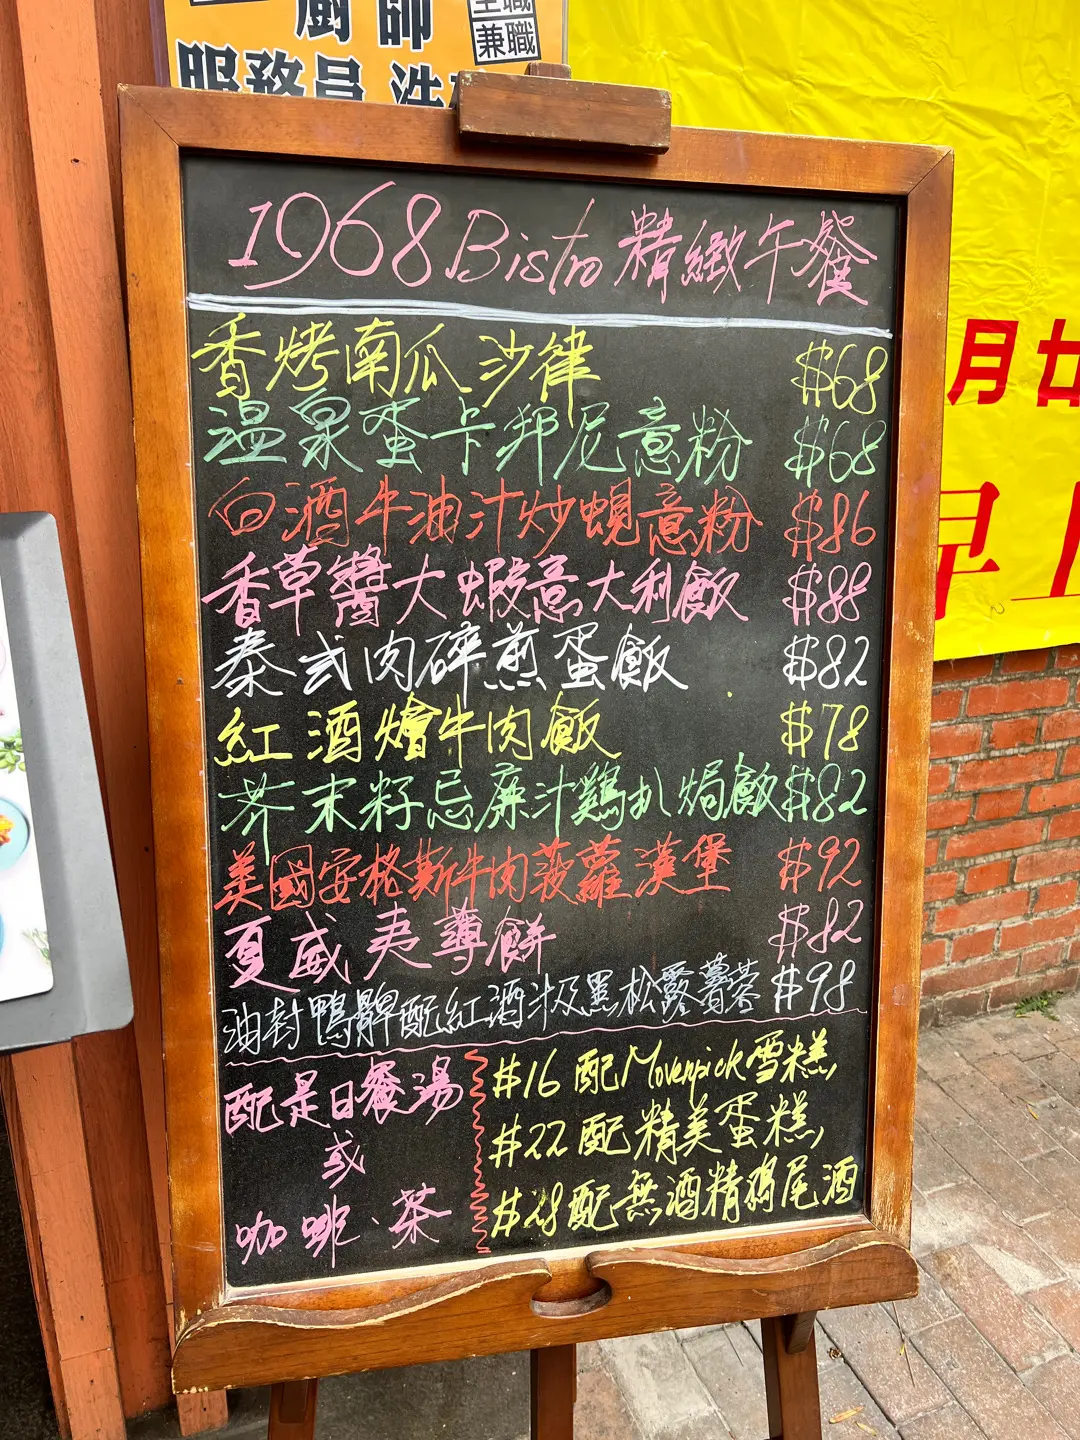 廚師
全職
兼職
服務員 洗
月廿
早上
1968 Bistro 精緻午餐
香烤南瓜沙律 $68
溫泉蛋卡邦尼意粉 $68
白酒牛油汁炒蜆意粉 $86
香草醬大蝦意大利飯 $88
泰式肉碎煎蛋飯 $82
紅酒燴牛肉飯 $78
芥末籽忌廉汁鷄扒焗飯 $82
美國安格斯牛肉菠蘿漢堡 $92
夏威夷薄餅 $82
油封鴨髀配紅酒汁及黑松露薯蓉 $98
配是日餐湯
或
咖啡、茶
$16 配Movenpick雪糕,
$22 配精美蛋糕,
$28配無酒精鷄尾酒